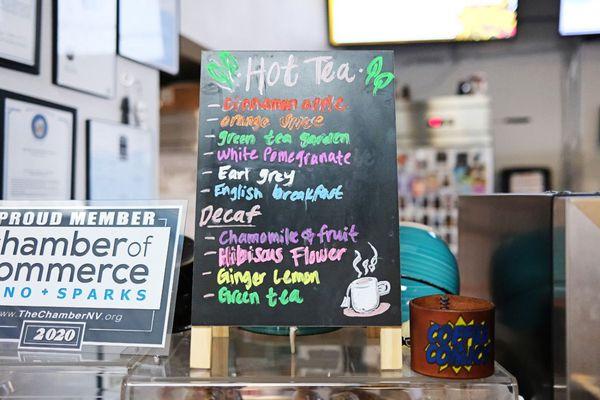 Hot Tea
- Cinnamon apple
- orange spice
- green tea garden
- White Pomegranate
- Earl grey
- English breakfast
Decaf
- Chamomile & fruit
- Hibiscus Flower
- Ginger Lemon
- Green tea
PROUD MEMBER
hamber of
ommerce
NO + SPARKS
www.TheChamberNV.org
2020